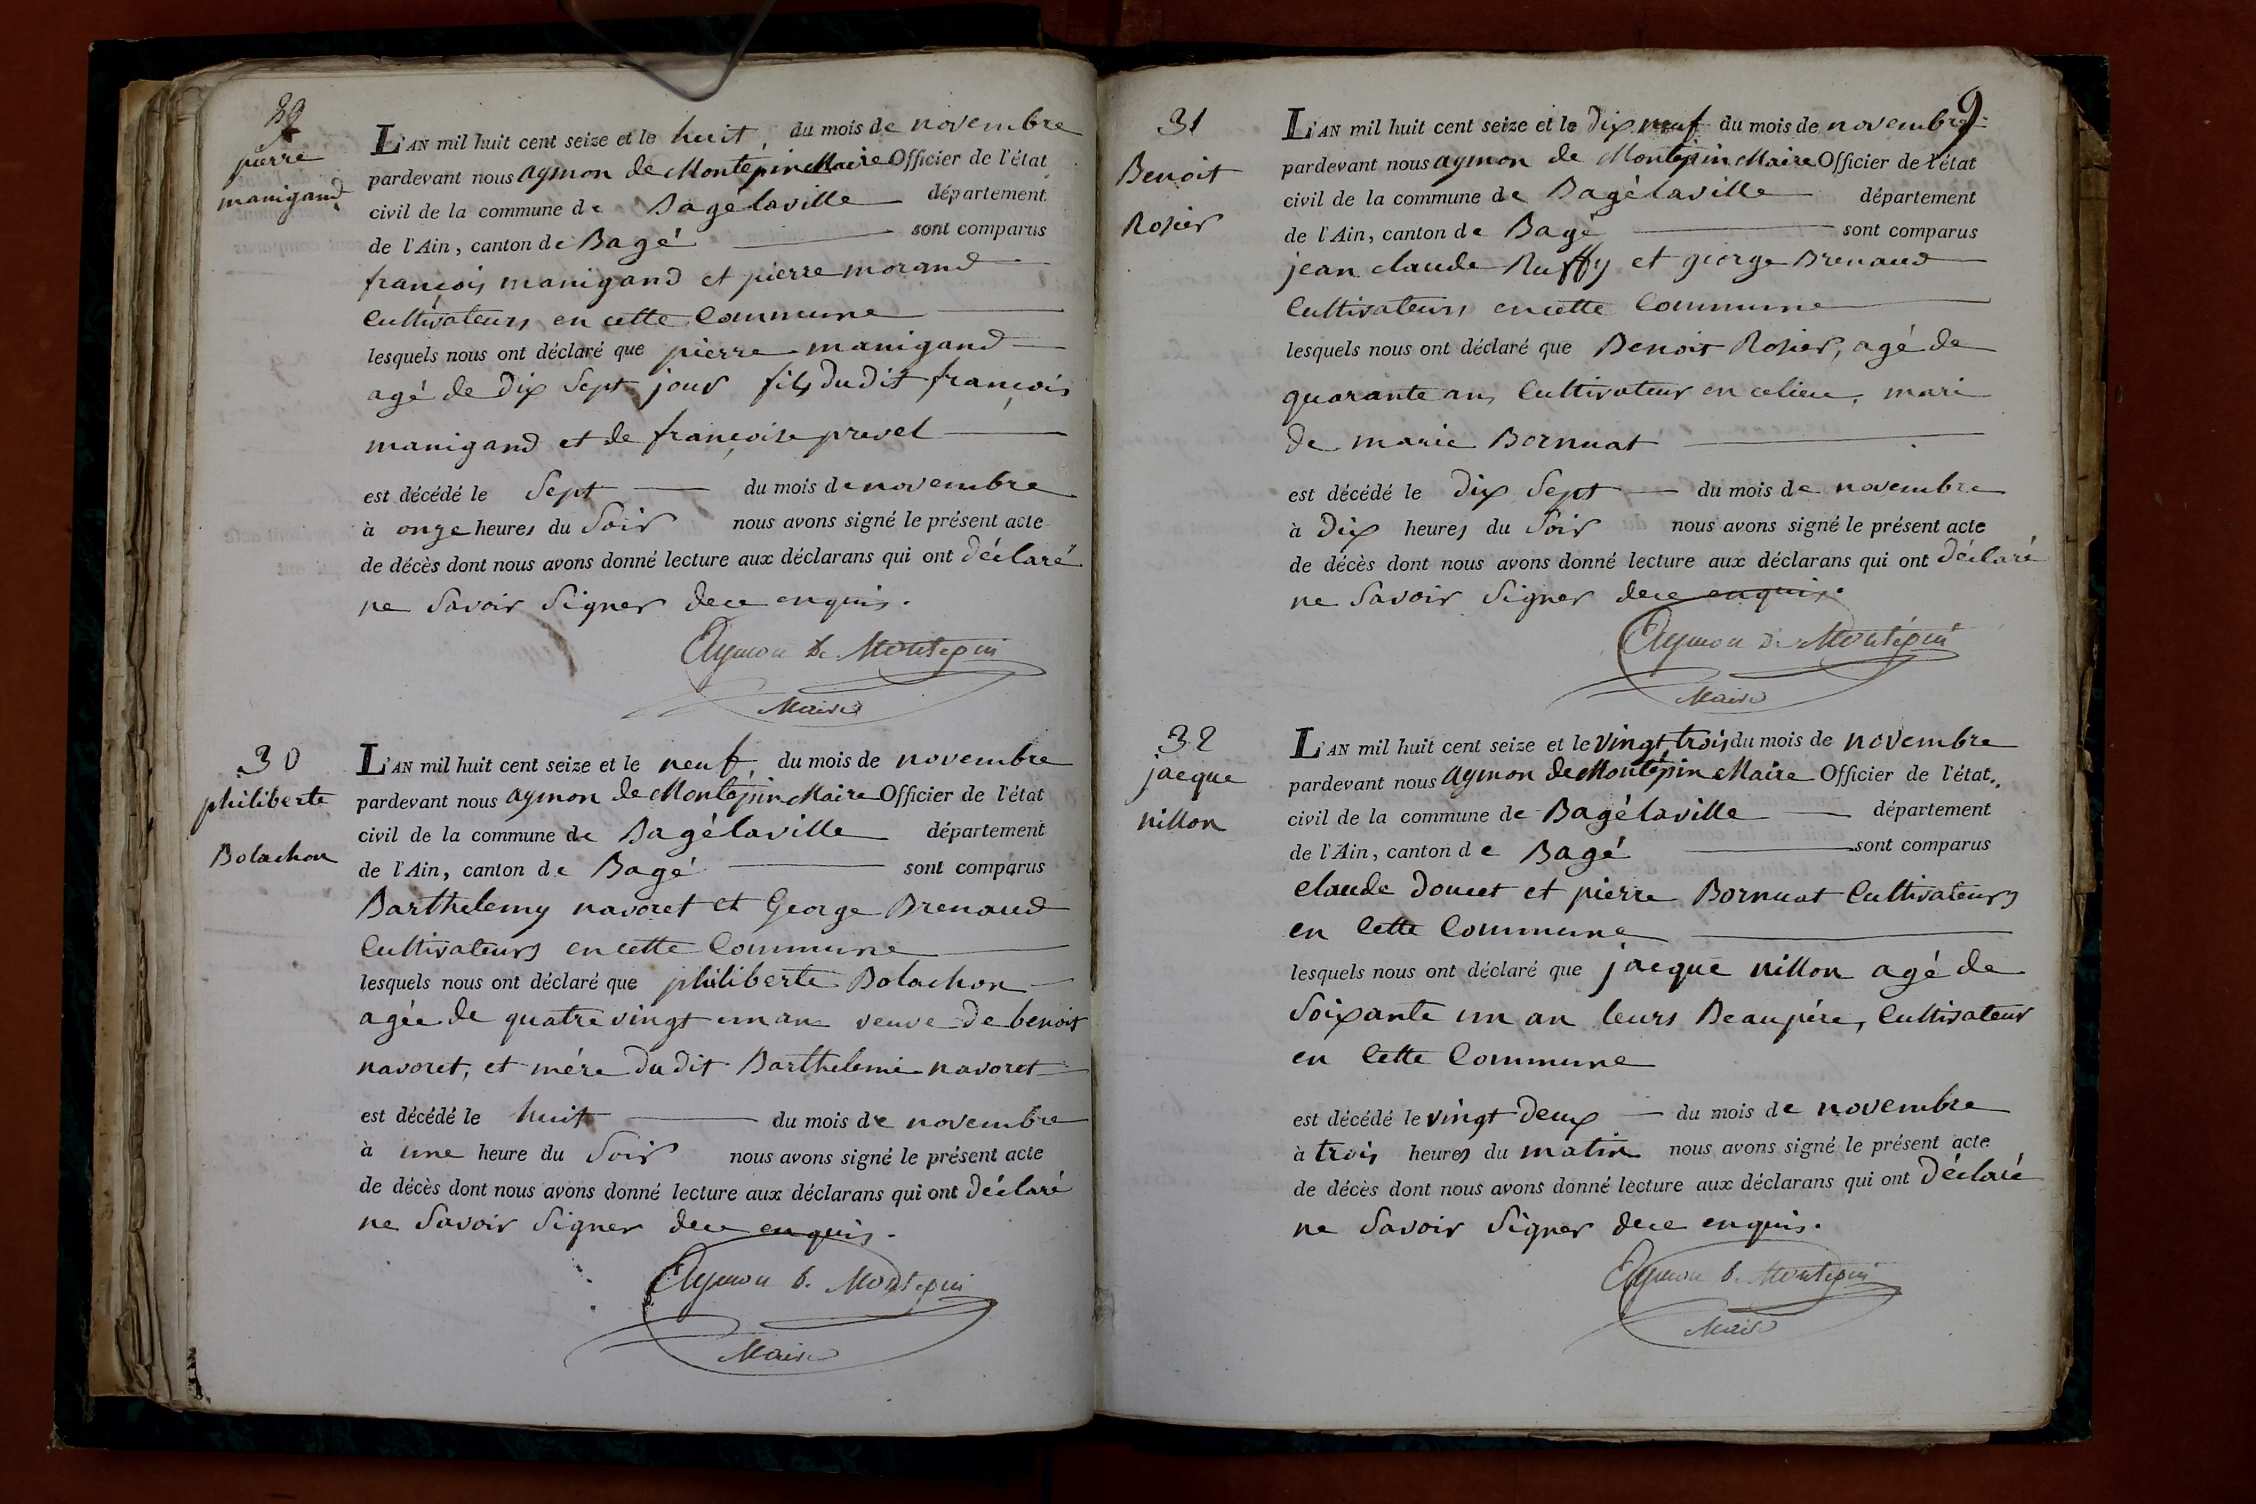 29
pierre
manigand
L'AN mil huit cent seize et le huit, du mois de novembre
pardevant nous aymon de Montépin Maire Officier de l'état
civil de la commune de Bagélaville département
de l'Ain, canton de Bagé sont comparus
françois manigand et pierre morand
Cultivateurs en cette Commune
lesquels nous ont déclaré que pierre manigand
agé de dix Sept jour fils dudit françois
manigand et de françoise prevel
est décédé le Sept du mois de novembre
à onze heures du Soir nous avons signé le présent acte
de décès dont nous avons donné lecture aux déclarans qui ont déclaré
ne Savoir Signer dece enquis.
Aymon de Montepin
Maire
30
philiberte
Bolachon
L'AN mil huit cent seize et le neuf du mois de novembre
pardevant nous aymon de Montépin Maire Officier de l'état
civil de la commune de Bagélaville département
de l'Ain, canton de Bagé sont comparus
Barthelemy navoret et George Brenaud
Cultivateurs en cette Commune
lesquels nous ont déclaré que philiberte Bolachon
agée de quatre vingt un an veuve de benoit
navoret, et mére dudit Barthelemi navoret
est décédé le huit du mois de novembre
à une heure du Soir nous avons signé le présent acte
de décès dont nous avons donné lecture aux déclarans qui ont déclaré
ne Savoir Signer dece enquis.
Aymon de Montepin
Maire
9
31
Benoit
Rosier
L'AN mil huit cent seize et le dix neuf du mois de novembre
pardevant nous aymon de Montépin Maire Officier de l'état
civil de la commune de Bagélaville département
de l'Ain, canton de Bagé sont comparus
jean claude Ruffy et george Brenaud
Cultivateurs en cette Commune
lesquels nous ont déclaré que Benoit Rosier, agé de
quarante an, Cultivateur en celieu, mari
de marie Bornuat
est décédé le dix Sept du mois de novembre
à dix heures du Soir nous avons signé le présent acte
de décès dont nous avons donné lecture aux déclarans qui ont déclaré
ne Savoir Signer dece enquis.
Aymon de Montépin
Maire
32
jacque
nillon
L'AN mil huit cent seize et le vingt trois du mois de novembre
pardevant nous aymon de Montépin Maire Officier de l'état
civil de la commune de Bagélaville département
de l'Ain, canton de Bagé sont comparus
claude doucet et pierre Bornuat Cultivateurs
en Cette Commune
lesquels nous ont déclaré que jacque nillon agé de
Soixante un an leurs Beaupére, Cultivateur
en Cette Commune
est décédé le vingt deux du mois de novembre
à trois heures du matin nous avons signé le présent acte
de décès dont nous avons donné lecture aux déclarans qui ont déclaré
ne Savoir Signer dece enquis.
Aymon de Montepin
Maire